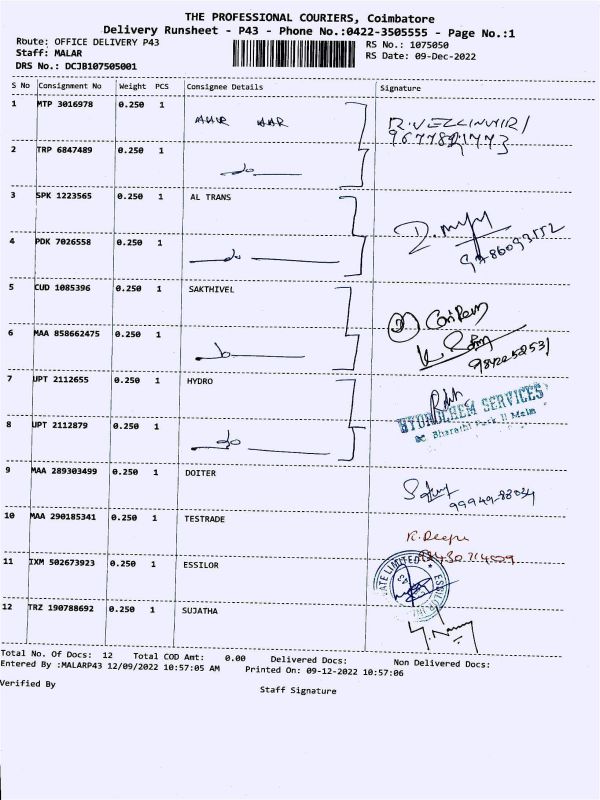 THE PROFESSIONAL COURIERS, Coimbatore
Delivery Runsheet - P43 - Phone No.:0422-3505555 - Page No.:1
Route: OFFICE DELIVERY P43 RS No.: 1075050
Staff: MALAR RS Date: 09-Dec-2022
DRS No.: DCJB107505001
S No Consignment No Weight PCS Consignee Details Signature
1 MTP 3016978 0.250 1
2 TRP 6847489 0.250 1 do
3 SPK 1223565 0.250 1 AL TRANS
4 PDK 7026558 0.250 1 do
5 CUD 1085396 0.250 1 SAKTHIVEL
6 MAA 858662475 0.250 1
7 UPT 2112655 0.250 1 HYDRO
8 UPT 2112879 0.250 1 do HYDROCHEM SERVICES
9 MAA 289303499 0.250 1 DOITER
10 MAA 290185341 0.250 1 TESTRADE K. Deepa
11 IXM 502673923 0.250 1 ESSILOR
12 TRZ 190788692 0.250 1 SUJATHA
Total No. Of Docs: 12 Total COD Amt: 0.00 Delivered Docs: Non Delivered Docs:
Entered By :MALARP43 12/09/2022 10:57:05 AM Printed On: 09-12-2022 10:57:06
Verified By Staff Signature